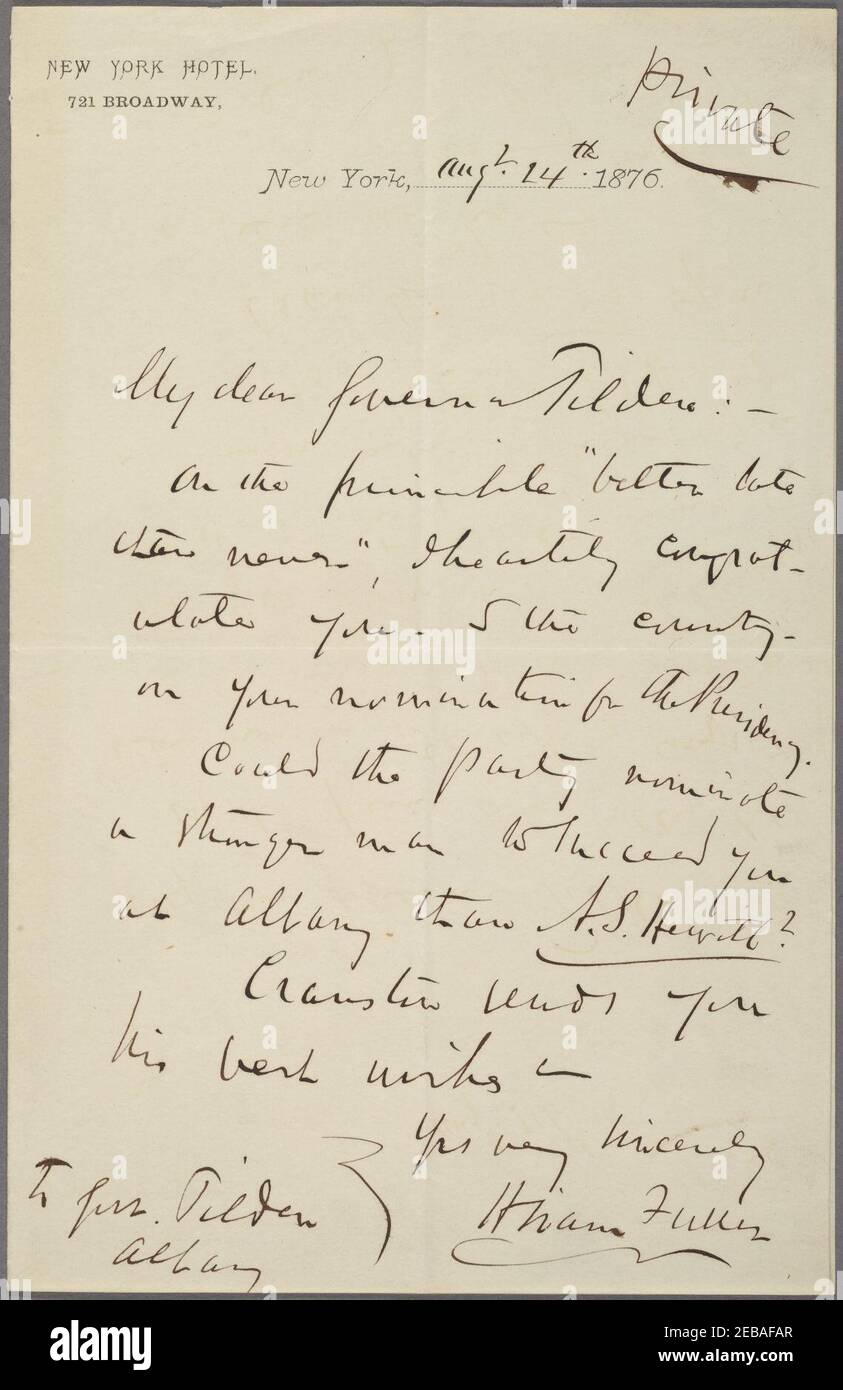 NEW YORK HOTEL,
721 BROADWAY,
Private
New York, Augt. 24th. 1876.
My dear Governor Tilden: —
On the principle "better late
than never", I heartily congrat-
ulate you. & the country-
on your nomination for the Presidency.
Could the party nominate
a stronger man to succeed you
at Albany than A.S. Hewitt?
Cranston sends you
his best wishes —
Yrs very sincerely
Hiram Fuller
To Gov. Tilden
Albany
alamy
Image ID: 2EBAFAR
www.alamy.com